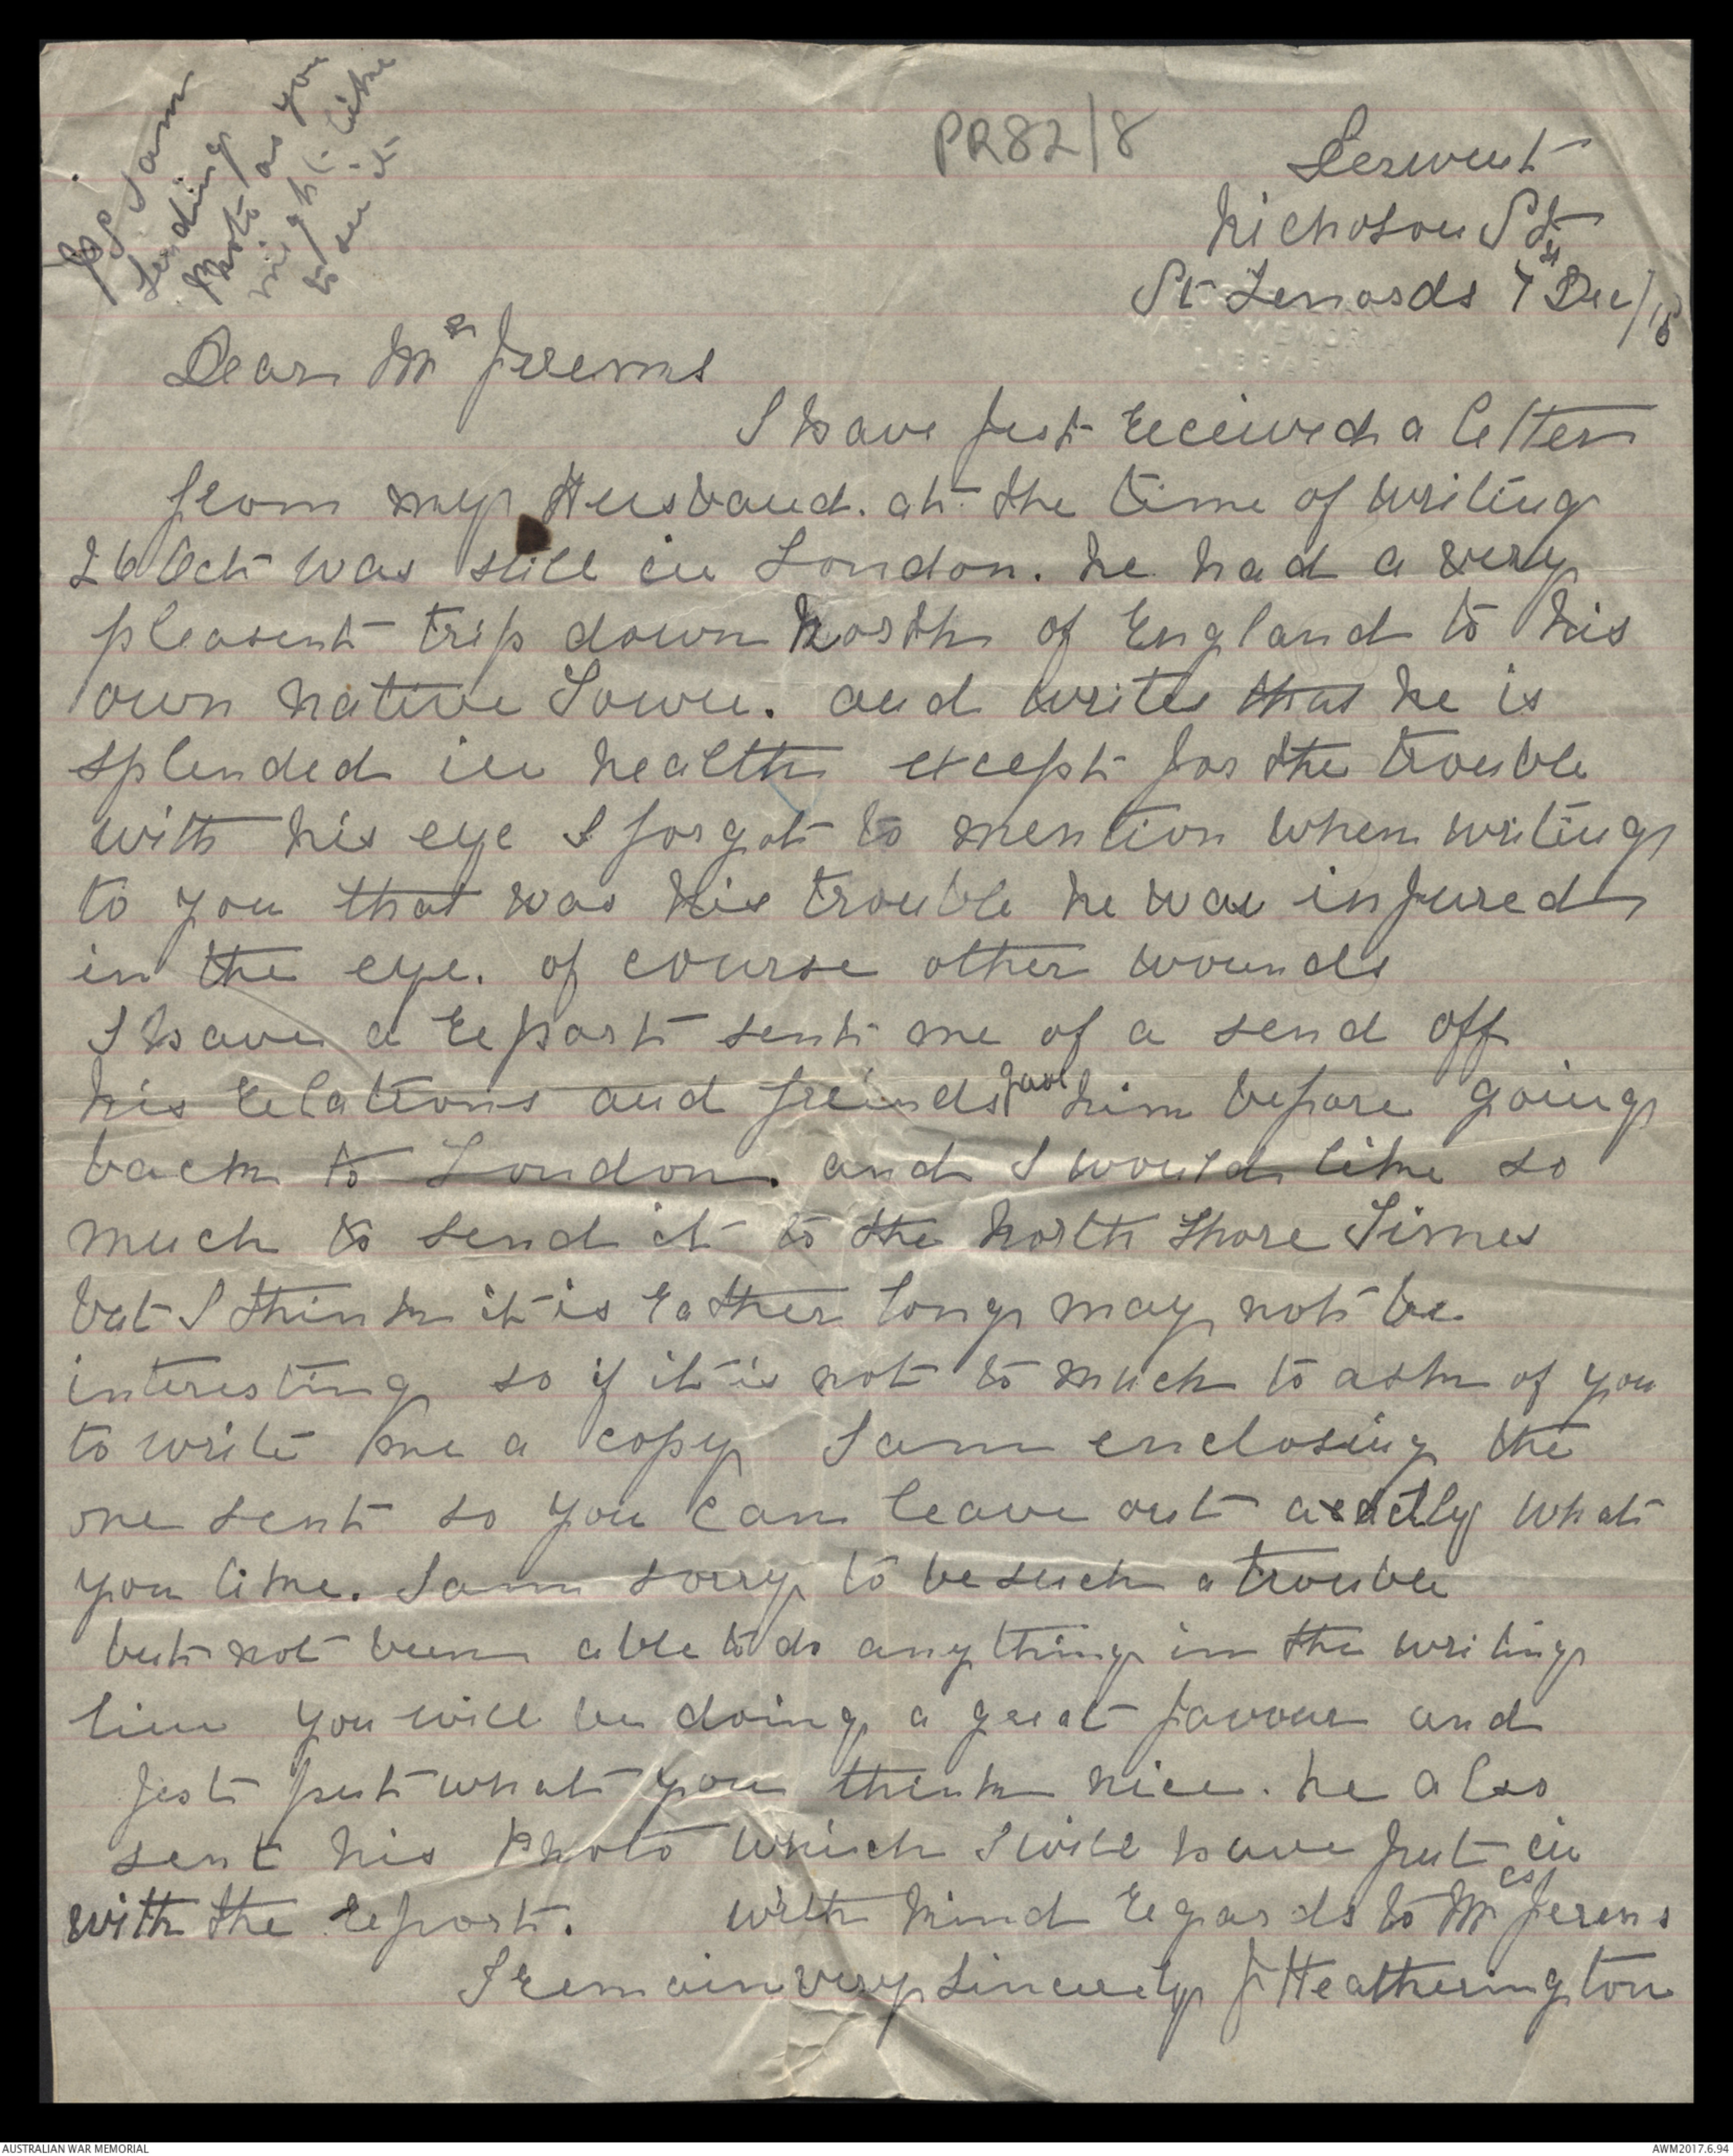 PS I am
sending
Photo as you
might like
to see it
PR82/8
Derwent
Nicholson St
St Lenords 7 Dec/15
Dear Mr Jerems
I have just received a letter
from my Husband. at the time of writing
26 Oct was still in London. he had a very
pleasent trip down North of England to his
own native Town. and writes that he is
splended in health except for the trouble
with his eye I forgot to mention when writing
to you that was his trouble he was injured
in the eye. of course other wounds
I have a report sent me of a send off
his relations and freinds gave him before going
back to London. and I would like so
much to send it to the North Shore Times
but I think it is rather long may not be
interesting so if it is not to much to ask of you
to write me a copy I am enclosing the
one sent so you can leave out axactly what
you like. I am sorry to be such a trouble
but not been able to do anything in the writing
line you will be doing a great favour and
jest put what you think nice. he also
sent his Photo which I will have put in
with the report. with kind regards to Mrs Jerems
I remain very sincerely J Heatherington
AUSTRALIAN WAR MEMORIAL
AWM2017.6.94